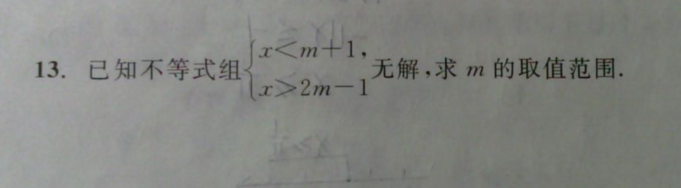 x<m+1,
13. 已知不等式组 无解,求 m 的取值范围.
x>2m-1